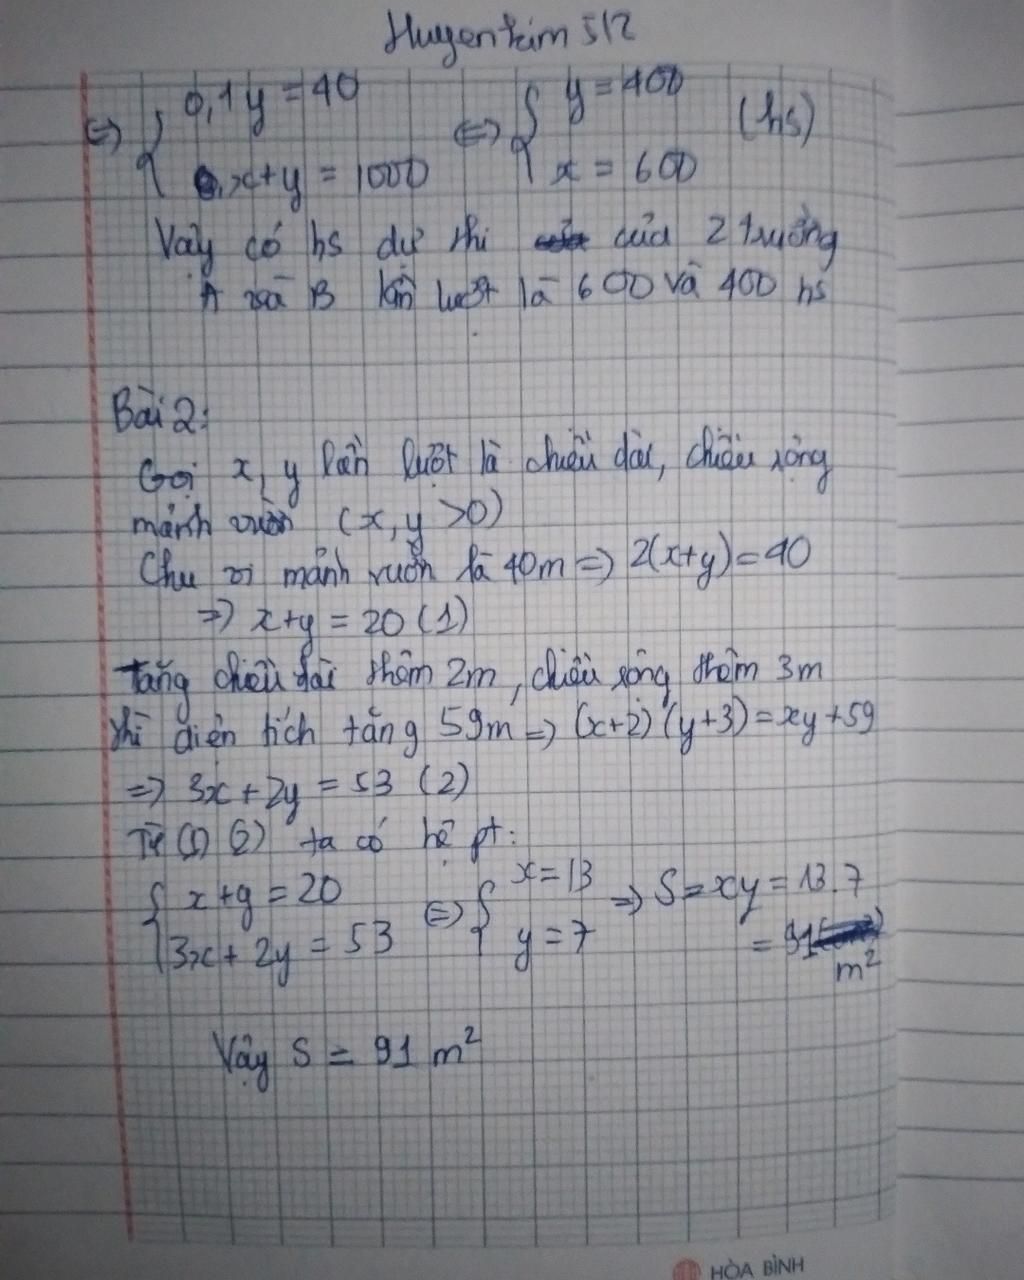 Huyenkim512
⇔ { 0,1y = 40 ⇔ { y = 400 (hs)
x+y = 1000 x = 600
Vậy có hs dự thi của 2 trường
A và B lần lượt là 600 và 400 hs
Bài 2:
Gọi x, y lần lượt là chiều dài, chiều rộng
mảnh vườn (x, y >0)
Chu vi mảnh vườn là 40m => 2(x+y) = 40
=> x+y = 20 (1)
tăng chiều dài thêm 2m, chiều rộng thêm 3m
thì diện tích tăng 59m => (x+2)(y+3) = xy+59
=> 3x + 2y = 53 (2)
Từ (1) (2) ta có hệ pt:
{ x+y = 20 ⇔ { x = 13 => S = xy = 13.7
3x + 2y = 53 y = 7 = 91 m²
Vậy S = 91 m²
HÒA BÌNH